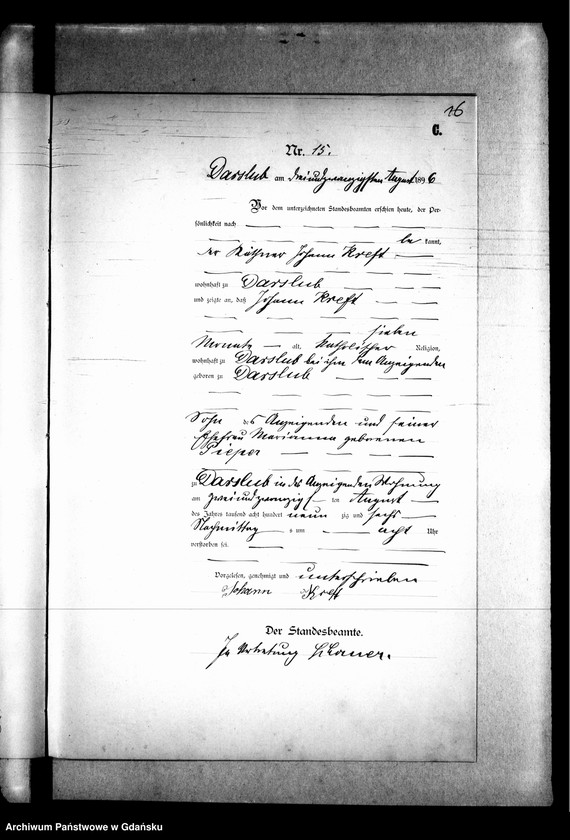 16
C.
Nr. 15.
Darslub am dreiundzwanzigsten August 1896
Vor dem unterzeichneten Standesbeamten erschien heute, der Per-
sönlichkeit nach
be kannt,
der Käthner Johann Kreft
wohnhaft zu Darslub
und zeigte an, daß Johann Kreft
sieben
Monate alt, katholischer Religion,
wohnhaft zu Darslub bei ihm dem Anzeigenden
geboren zu Darslub
Sohn des Anzeigenden und seiner
Ehefrau Marianna geborenen
Pieper
zu Darslub in des Anzeigenden Wohnung
am zweiundzwanzigsten August
des Jahres tausend acht hundert neun zig und sechs
Nachmittag s um acht Uhr
verstorben sei.
Vorgelesen, genehmigt und unterschrieben
Johann Kreft
Der Standesbeamte.
In Vertretung
Archiwum Państwowe w Gdańsku